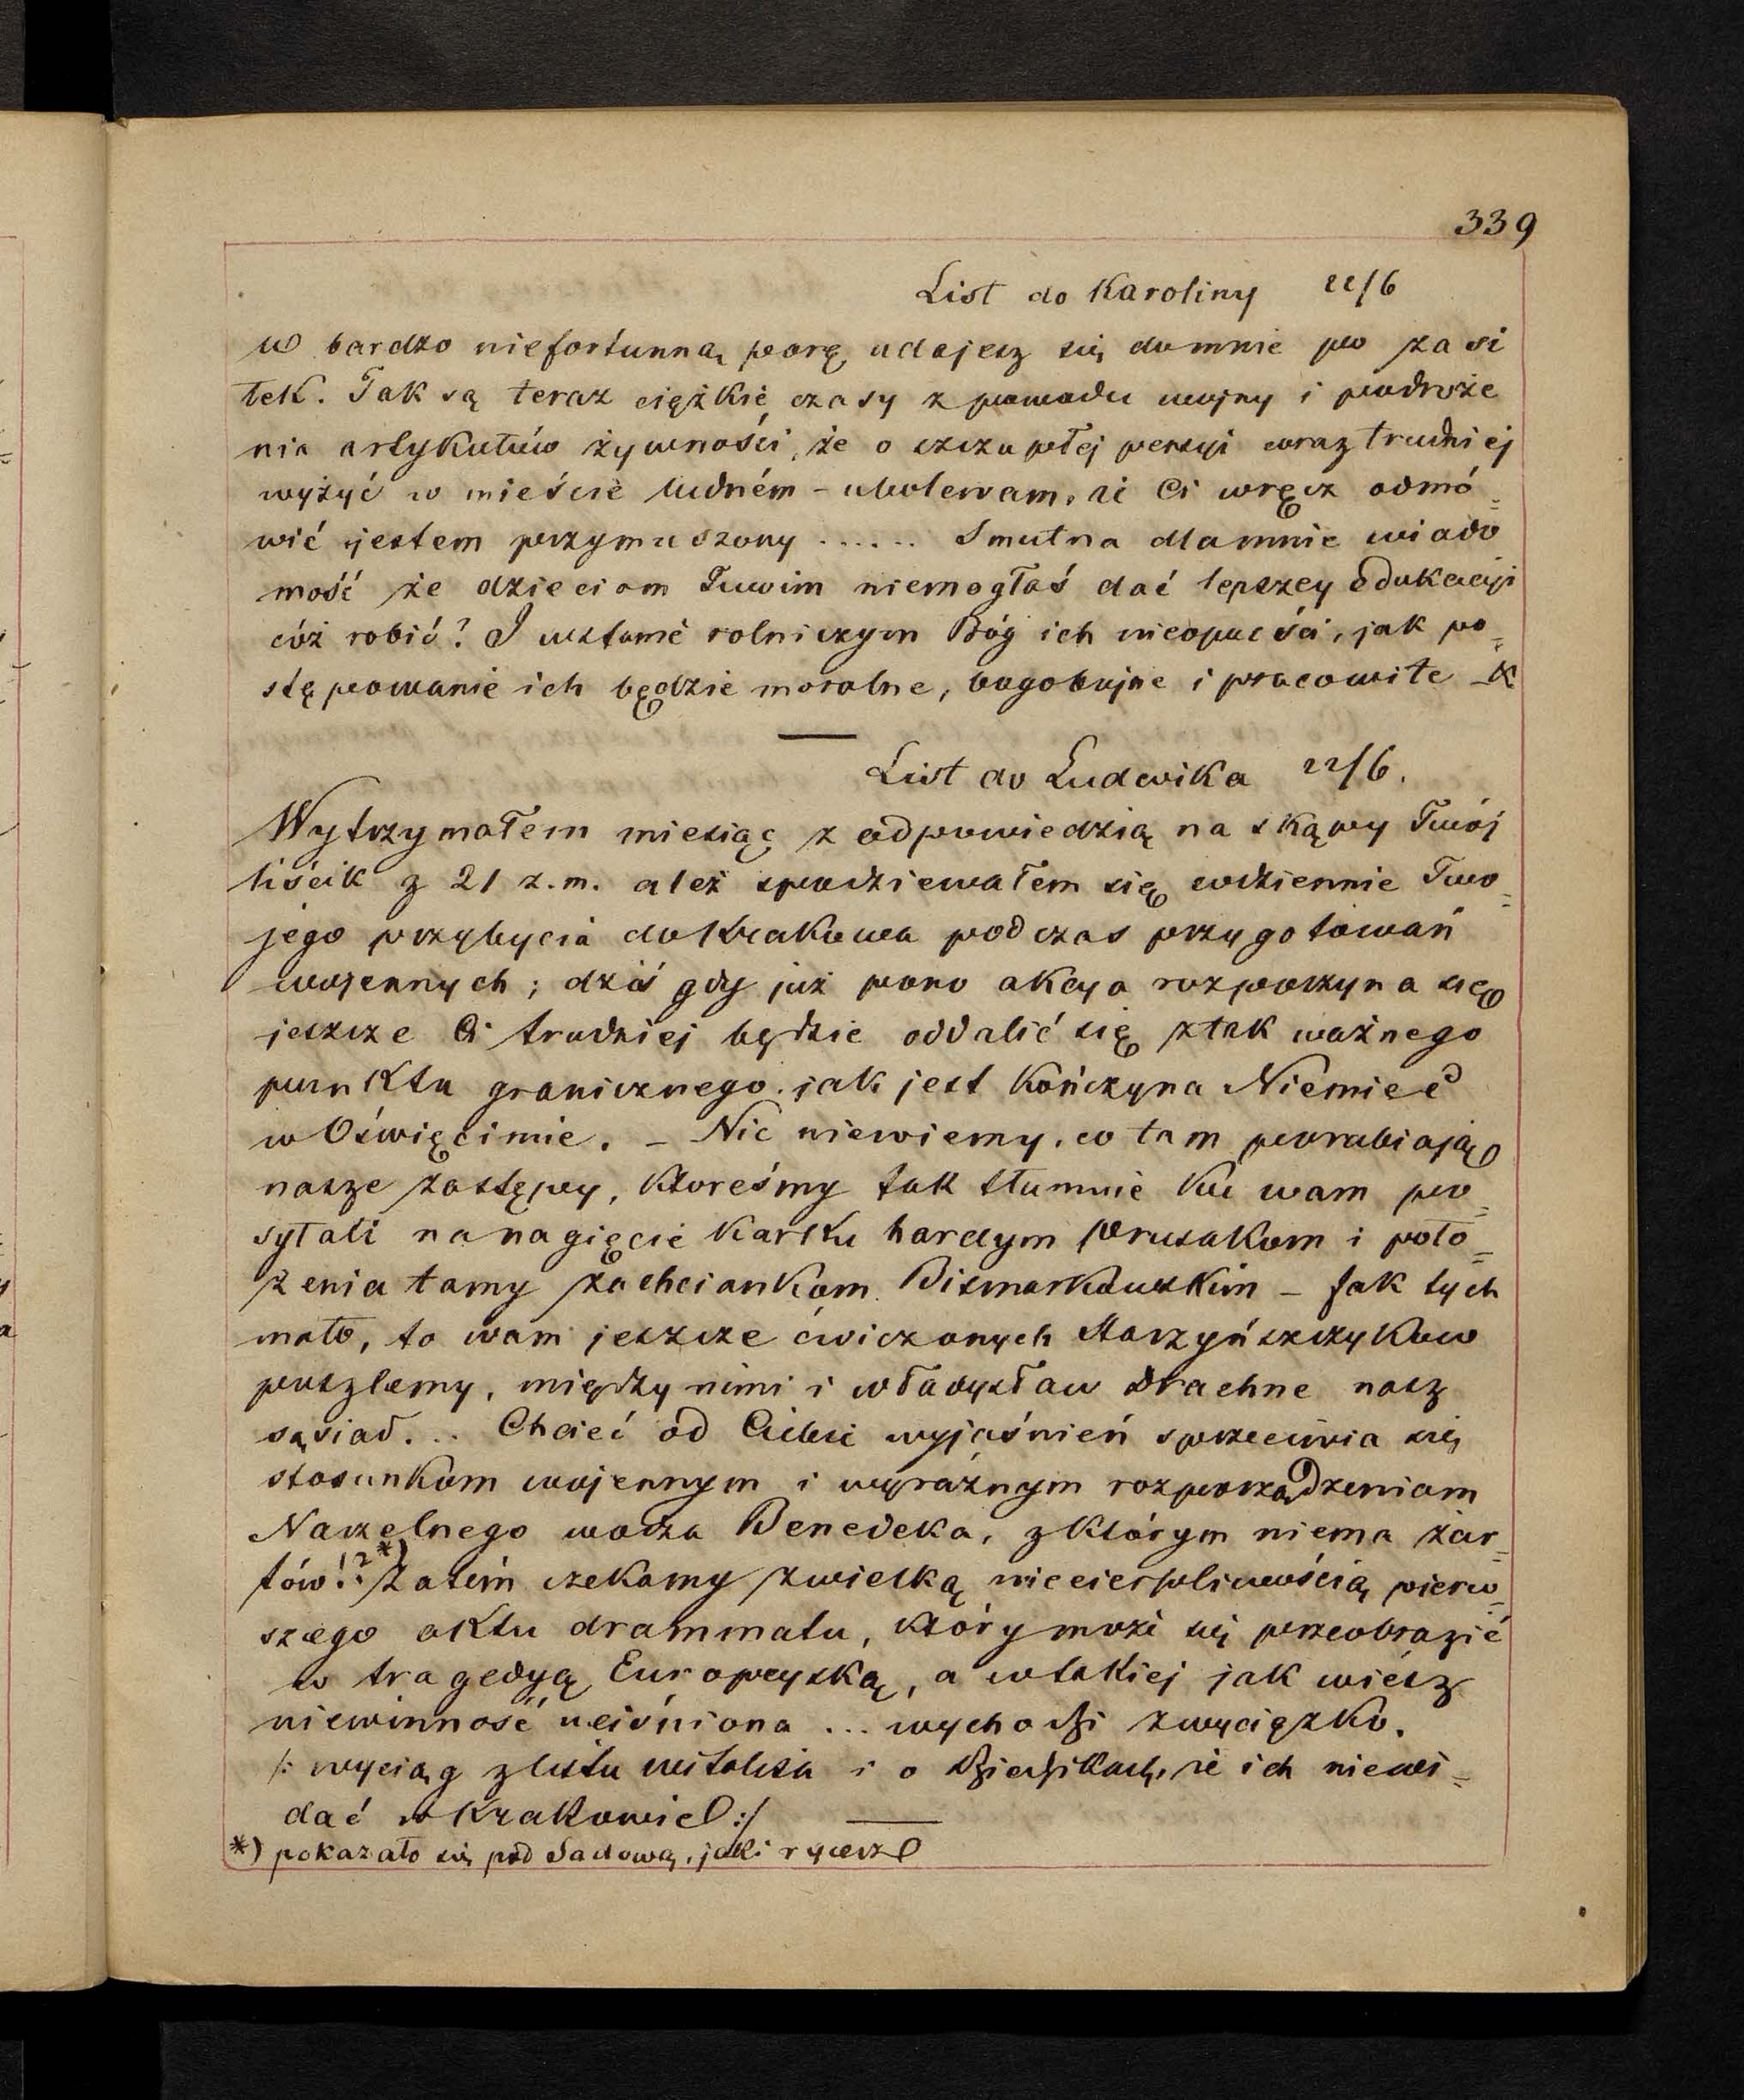 339
List do Karoliny 22/6
w bardzo niefortunną porę udajesz się domnie po zasi
łek. Tak są teraz ciężkie czasy z powodu wojny i podroże
nia artykułów żywności, że o szczupłej pensyi coraz trudniej
wyżyć w mieście ludném - ubolewam, że Ci wręcz odmó=
wić jestem przymuszony ...... Smutna dlamnie wiado
mość że dzieciom Twoim niemogłaś dać lepszey edukacyi
cóż robić? I wstanie rolniczym Bóg ich nieopuści, jak po=
stępowanie ich będzie moralne, bogobojne i pracowite -
List do Ludwika 22/6.
Wytrzymałem miesiąc z odpowiedzią na skąpy Twój
liścik z 21 z.m. ależ spodziewałem się codziennie Two=
jego przybycia do Krakowa podczas przygotowań
wojennych; dziś gdy już pono akcya rozpoczyna się
jeszcze Ci trudniej będzie oddalić się ztak ważnego
punktu granicznego jak jest kończyna Niemiec
w Oświęcimie. - Nic niewiemy, co tam porabiają
nasze zastępy, któreśmy tak tłumnie ku wam po=
syłali na nagięcie karku hardym Prusakom i poło=
żenia tamy zachciankom Bismarkowskim - Jak tych
mało, to wam jeszcze ćwiczonych Starzyńszczyków
poszlemy, między nimi i Władysław Drachne nasz
sąsiad... Chcieć od Ciebie wyjaśnień sprzeciwia się
stosunkom wojennym i wyraźnym rozporządzeniom
Naczelnego wodza Benedeka, z którym niema żar=
tów!?*) Zatém czekamy zwielką niecierpliwością pierw=
szego aktu drammatu, który może się przeobrazić
w tragedyą Europeyską, a wtakiej jak wiesz
niewinność uciśniona ... wychodzi zwycięzko.
/: wyciąg z listu Witalisa i o dziedzikach, że ich niewi=
dać w Krakowie :/
*) pokazało się pod Sadową, jaki rycerz